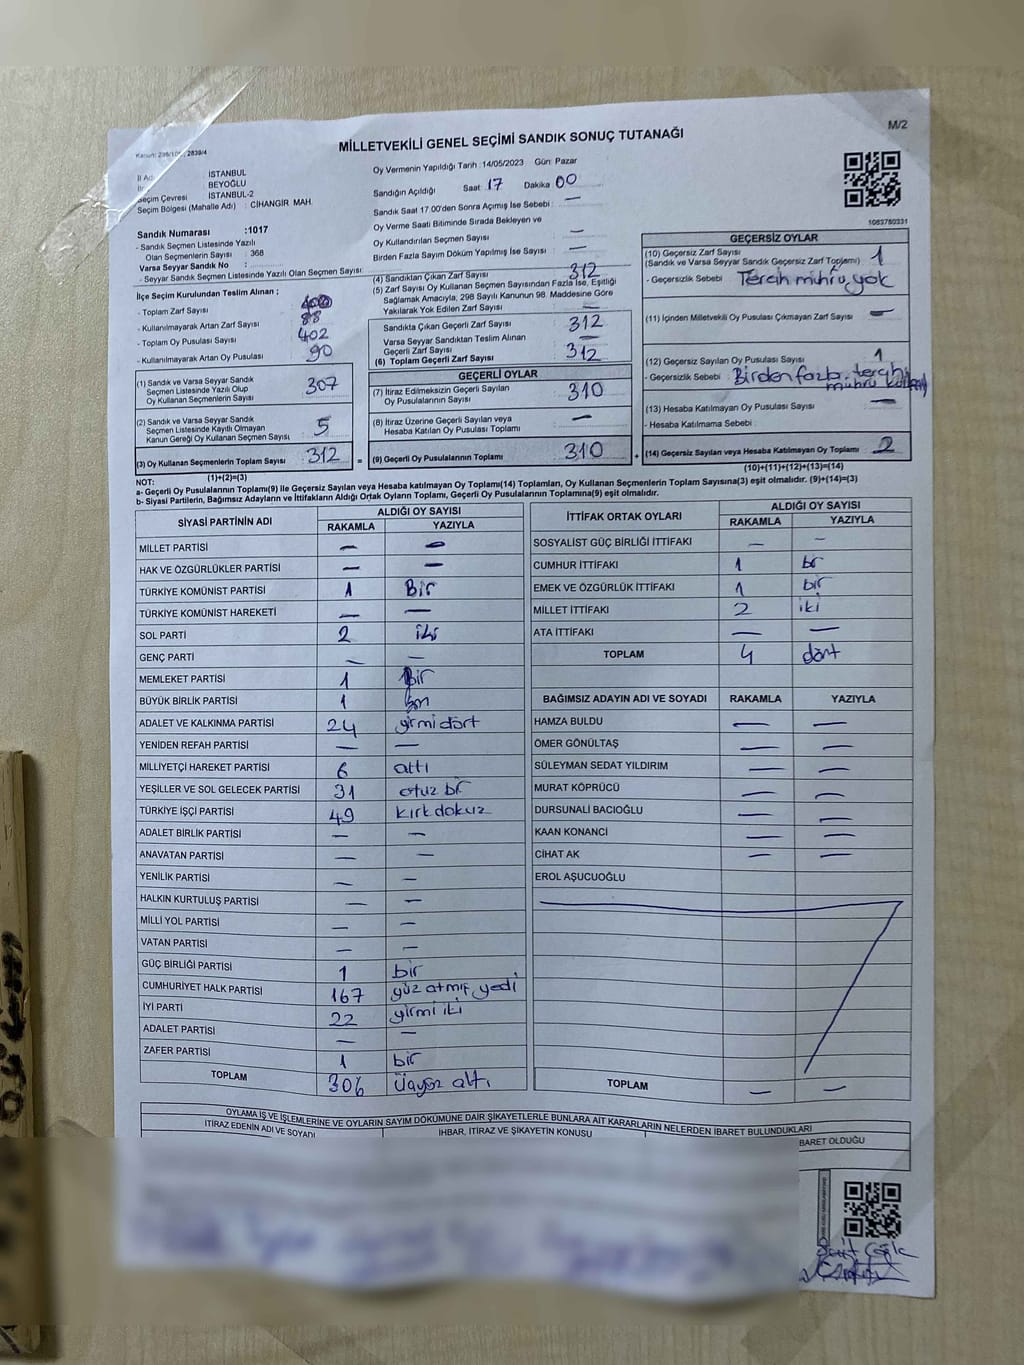 MİLLETVEKİLİ GENEL SEÇİMİ SANDIK SONUÇ TUTANAĞI
M/2
İSTANBUL
BEYOĞLU
Seçim Çevresi : İSTANBUL-2
Seçim Bölgesi (Mahalle Adı) : CİHANGİR MAH.
Sandık Numarası :1017
- Sandık Seçmen Listesinde Yazılı
Olan Seçmenlerin Sayısı : 368
Varsa Seyyar Sandık No :
- Seyyar Sandık Seçmen Listesinde Yazılı Olan Seçmen Sayısı:
İlçe Seçim Kurulundan Teslim Alınan ;
- Toplam Zarf Sayısı
- Kullanılmayarak Artan Zarf Sayısı 88
- Toplam Oy Pusulası Sayısı 402
- Kullanılmayarak Artan Oy Pusulası 90
(1) Sandık ve Varsa Seyyar Sandık
Seçmen Listesinde Yazılı Olup
Oy Kullanan Seçmenlerin Sayısı 307
(2) Sandık ve Varsa Seyyar Sandık
Seçmen Listesinde Kayıtlı Olmayan
Kanun Gereği Oy Kullanan Seçmen Sayısı 5
(3) Oy Kullanan Seçmenlerin Toplam Sayısı 312 =
(1)+(2)=(3)
Oy Vermenin Yapıldığı Tarih : 14/05/2023 Gün: Pazar
Sandığın Açıldığı Saat 17 Dakika 00
Sandık Saat 17:00'den Sonra Açılmış İse Sebebi : —
Oy Verme Saati Bitiminde Sırada Bekleyen ve
Oy Kullandırılan Seçmen Sayısı —
Birden Fazla Sayım Döküm Yapılmış İse Sayısı —
(4) Sandıktan Çıkan Zarf Sayısı 312
(5) Zarf Sayısı Oy Kullanan Seçmen Sayısından Fazla İse, Eşitliği
Sağlamak Amacıyla; 298 Sayılı Kanunun 98. Maddesine Göre
Yakılarak Yok Edilen Zarf Sayısı —
Sandıkta Çıkan Geçerli Zarf Sayısı 312
Varsa Seyyar Sandıktan Teslim Alınan
Geçerli Zarf Sayısı —
(6) Toplam Geçerli Zarf Sayısı 312
GEÇERLİ OYLAR
(7) İtiraz Edilmeksizin Geçerli Sayılan
Oy Pusulalarının Sayısı 310
(8) İtiraz Üzerine Geçerli Sayılan veya
Hesaba Katılan Oy Pusulası Toplamı —
(9) Geçerli Oy Pusulalarının Toplamı 310 +
1083780331
GEÇERSİZ OYLAR
(10) Geçersiz Zarf Sayısı 1
(Sandık ve Varsa Seyyar Sandık Geçersiz Zarf Toplamı)
- Geçersizlik Sebebi Tercih mührü yok
(11) İçinden Milletvekili Oy Pusulası Çıkmayan Zarf Sayısı —
(12) Geçersiz Sayılan Oy Pusulası Sayısı 1
- Geçersizlik Sebebi Birden fazla tercih
mührü
(13) Hesaba Katılmayan Oy Pusulası Sayısı —
- Hesaba Katılmama Sebebi
(14) Geçersiz Sayılan veya Hesaba Katılmayan Oy Toplamı 2
(10)+(11)+(12)+(13)=(14)
NOT:
a- Geçerli Oy Pusulalarının Toplamı(9) ile Geçersiz Sayılan veya Hesaba katılmayan Oy Toplamı(14) Toplamları, Oy Kullanan Seçmenlerin Toplam Sayısına(3) eşit olmalıdır. (9)+(14)=(3)
b- Siyasi Partilerin, Bağımsız Adayların ve İttifakların Aldığı Ortak Oyların Toplamı, Geçerli Oy Pusulalarının Toplamına(9) eşit olmalıdır.
SİYASİ PARTİNİN ADI ALDIĞI OY SAYISI
RAKAMLA YAZIYLA
MİLLET PARTİSİ — —
HAK VE ÖZGÜRLÜKLER PARTİSİ — —
TÜRKİYE KOMÜNİST PARTİSİ 1 Bir
TÜRKİYE KOMÜNİST HAREKETİ — —
SOL PARTİ 2 iki
GENÇ PARTİ — —
MEMLEKET PARTİSİ 1 Bir
BÜYÜK BİRLİK PARTİSİ 1
ADALET VE KALKINMA PARTİSİ 24 yirmidört
YENİDEN REFAH PARTİSİ — —
MİLLİYETÇİ HAREKET PARTİSİ 6 altı
YEŞİLLER VE SOL GELECEK PARTİSİ 31 otuz bir
TÜRKİYE İŞÇİ PARTİSİ 49 kırk dokuz
ADALET BİRLİK PARTİSİ — —
ANAVATAN PARTİSİ — —
YENİLİK PARTİSİ — —
HALKIN KURTULUŞ PARTİSİ — —
MİLLİ YOL PARTİSİ — —
VATAN PARTİSİ — —
GÜÇ BİRLİĞİ PARTİSİ 1 bir
CUMHURİYET HALK PARTİSİ 167 yüz atmış yedi
İYİ PARTİ 22 yirmi iki
ADALET PARTİSİ — —
ZAFER PARTİSİ 1 bir
TOPLAM 306 üçyüz altı
İTTİFAK ORTAK OYLARI ALDIĞI OY SAYISI
RAKAMLA YAZIYLA
SOSYALİST GÜÇ BİRLİĞİ İTTİFAKI — —
CUMHUR İTTİFAKI 1 bir
EMEK VE ÖZGÜRLÜK İTTİFAKI 1 bir
MİLLET İTTİFAKI 2 iki
ATA İTTİFAKI — —
TOPLAM 4 dört
BAĞIMSIZ ADAYIN ADI VE SOYADI RAKAMLA YAZIYLA
HAMZA BULDU — —
ÖMER GÖNÜLTAŞ — —
SÜLEYMAN SEDAT YILDIRIM — —
MURAT KÖPRÜCÜ — —
DURSUNALİ BACIOĞLU — —
KAAN KONANCİ — —
CİHAT AK — —
EROL AŞUCUOĞLU
TOPLAM — —
OYLAMA İŞ VE İŞLEMLERİNE VE OYLARIN SAYIM DÖKÜMÜNE DAİR ŞİKAYETLERLE BUNLARA AİT KARARLARIN NELERDEN İBARET BULUNDUKLARI
İTİRAZ EDENİN ADI VE SOYADI İHBAR, İTİRAZ VE ŞİKAYETİN KONUSU BARET OLDUĞU